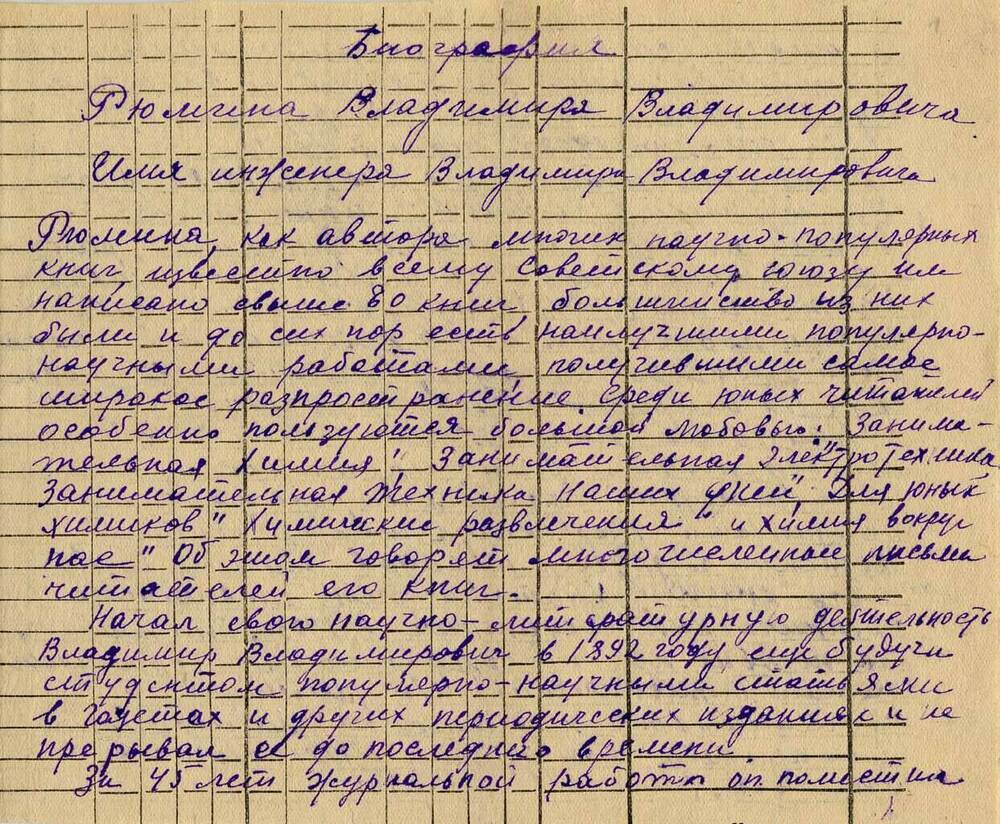 Биография
Рюмина Владимира Владимировича
Имя инженера Владимира Владимировича
Рюмина, как автора многих научно-популярных
книг известно всему Советскому союзу им
написано свыше 80 книг, большинство из них
были и до сих пор есть наилучшими популярно-
научными работами, получившими самое
широкое разпространение. Среди юных читателей
особенно пользуются большой любовью: Занима-
тельная Химия", Занимательная Электротехника
Занимательная техника Наших дней", Для юных
химиков" Химические развлечения" и химия вокруг
нас" Об этом говорят многочисленные письма
читателей его книг.
Начал свою научно-литературную деятельность
Владимир Владимирович в 1892 году еще будучи
студентом популярно-научными статьями
в газетах и других периодических изданиях и не
прерывал ее до последнего времени
За 45 лет журнальной работы он поместил